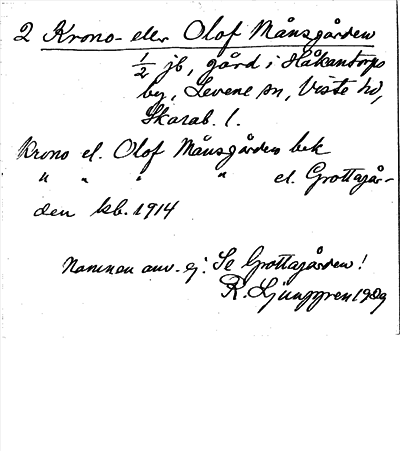 2 Krono- eller Olof Månsgården
1/2 jb, gård i Håkantorps
by, Levene sn, Viste hd,
Skarab. l.
Krono el. Olof Månsgården bek
" " " " el. Grottagår-
den kb. 1914
Namnen anv. ej. Se Grottagården!
R. Ljunggren 1909